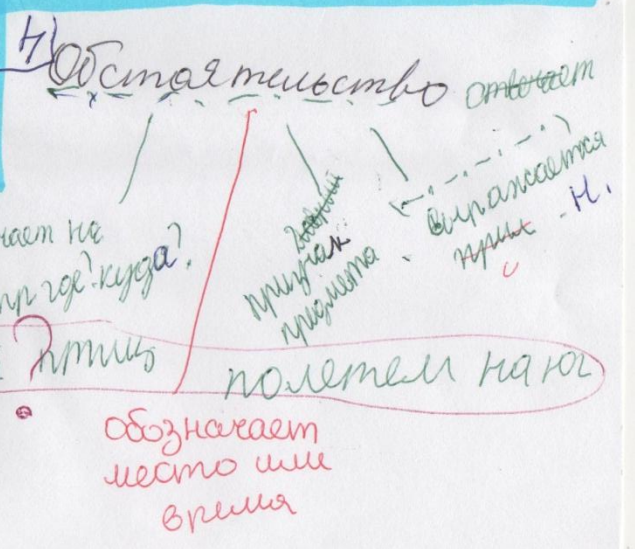 4) Обстоятельство отвечает
чает на
пр где? куда?
признак
предмета
выражается
прил - Н.
? птиц полетели на юг
обозначает
место или
время